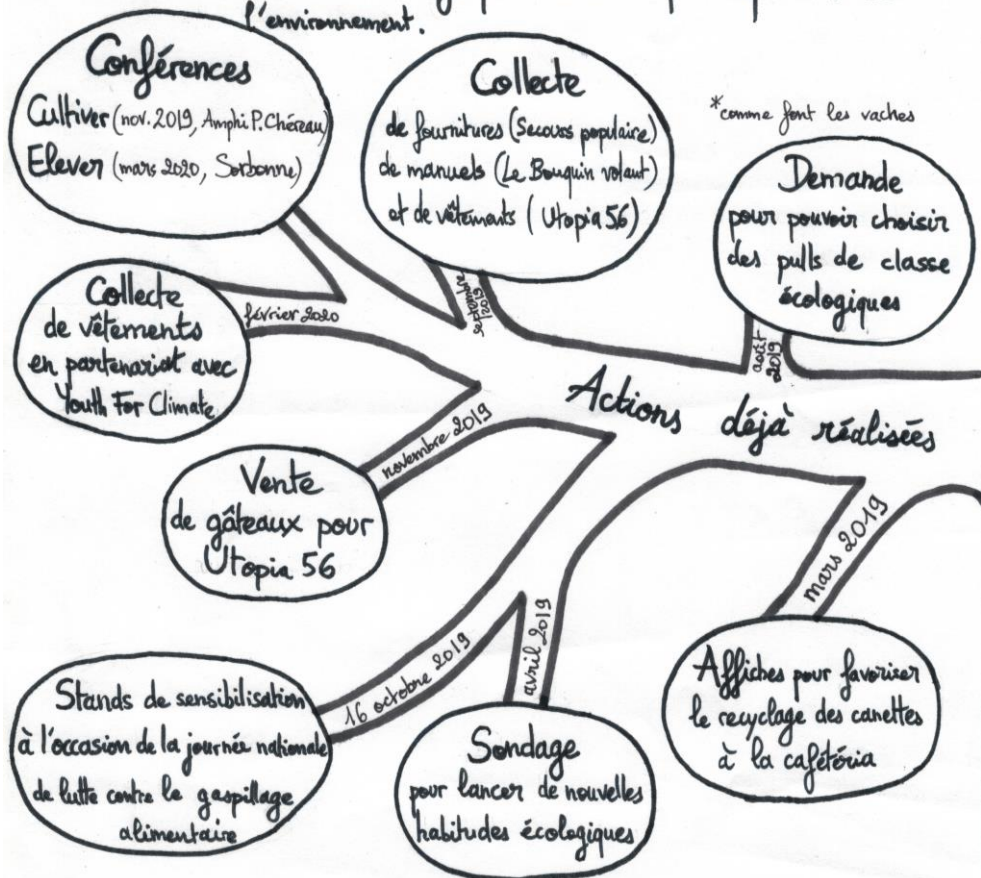 l'environnement.
Conférences
Cultiver (nov. 2019, Amphi P. Chéreau)
Elever (mars 2020, Sorbonne)
Collecte
de fournitures (Secours populaire)
de manuels (Le Bouquin volant)
et de vêtements (Utopia 56)
*comme font les vaches
Demande
pour pouvoir choisir
des pulls de classe
écologiques
Collecte
de vêtements
en partenariat avec
Youth For Climate
février 2020
septembre
2019
août
2019
Actions déjà réalisées
Vente
de gâteaux pour
Utopia 56
novembre 2019
mars 2019
Stands de sensibilisation
à l'occasion de la journée nationale
de lutte contre le gaspillage
alimentaire
16 octobre 2019
avril 2019
Sondage
pour lancer de nouvelles
habitudes écologiques
Affiches pour favoriser
le recyclage des canettes
à la cafétéria